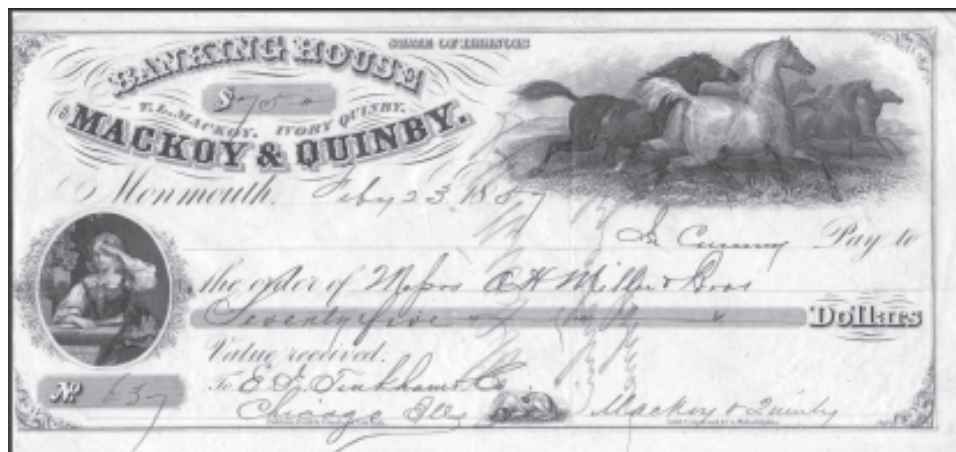 STATE OF ILLINOIS
BANKING HOUSE
$75
W. L. MACKOY. IVORY QUINBY.
OF MACKOY & QUINBY.
Monmouth. Feby 23, 1857
In Currency Pay to
the order of Messrs C H Miller & Bros
Seventy five Dollars
Value received.
No 637
To E. I. Tinkham & Co
Chicago Ills Mackoy & Quinby